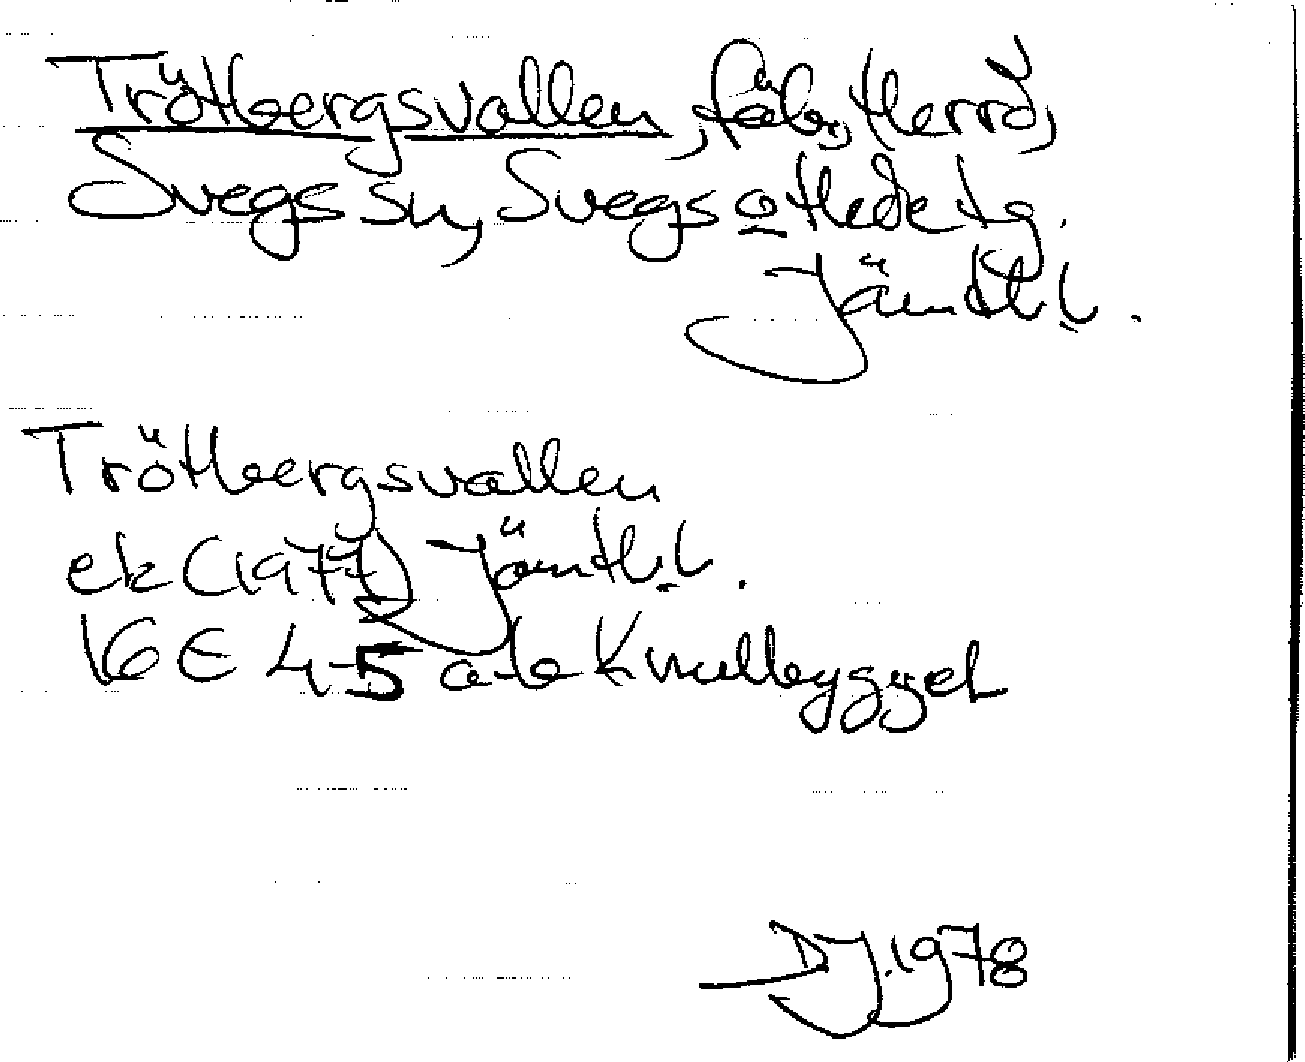 Trötbergsvallen, fäb, Herrö,
Svegs sn, Svegs o Hede tg.
Jämtl. l.
Trötbergsvallen
ek (1977) Jämtl. l.
16 E 4-5 a-b Knulbygget
DJ. 1978